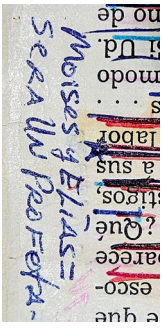 Moises y ELIAS =
SERA UN PROFETA-
que
esco-
parece
¿Qué
stigos.
a sus
labor
. . .
modo
i Ud.
de